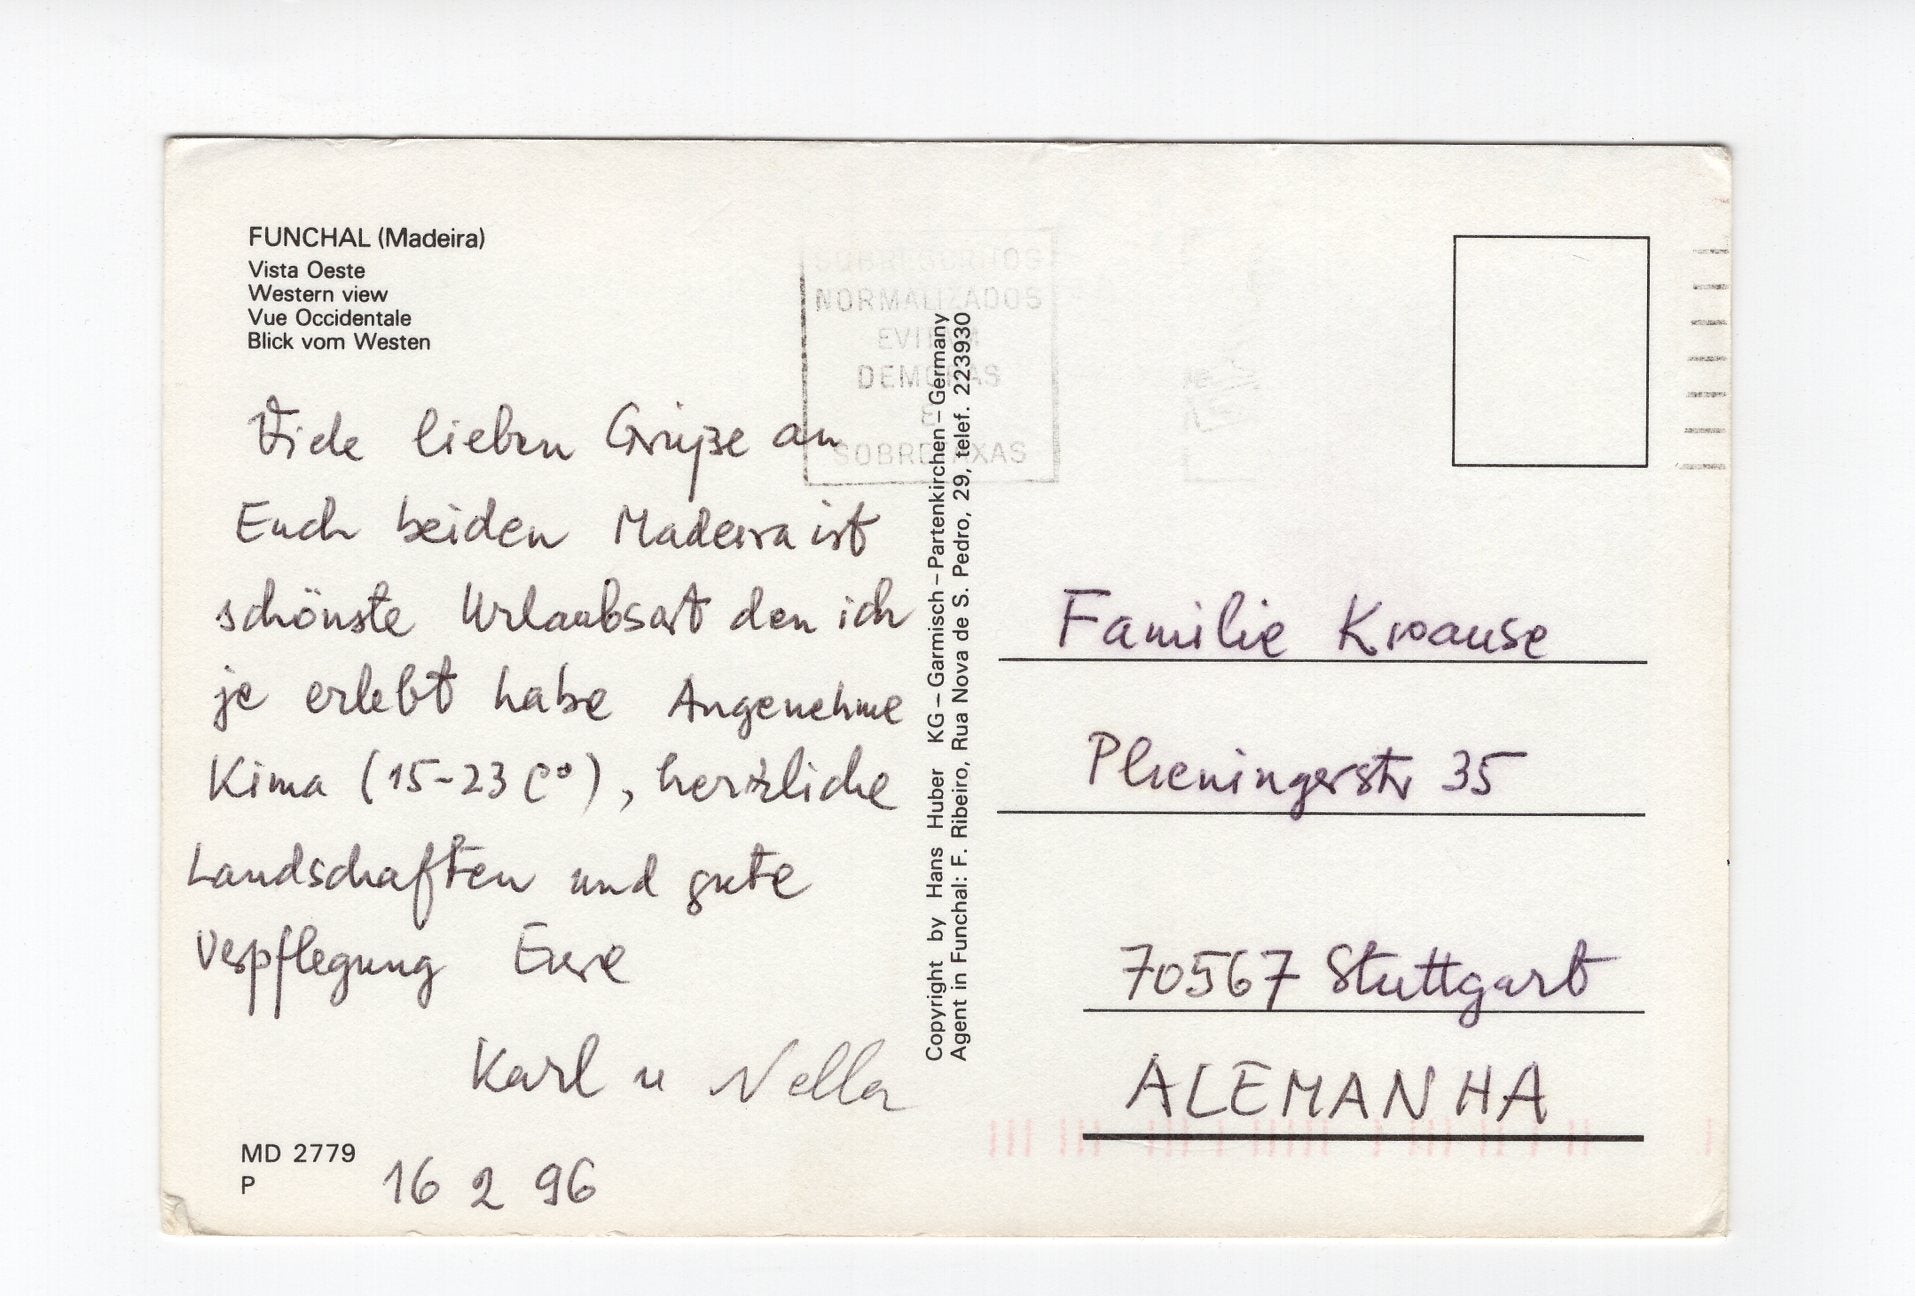 FUNCHAL (Madeira)
Vista Oeste
Western view
Vue Occidentale
Blick vom Westen
Viele lieben Grüße an
Euch beiden Madeira ist
schönste Urlaubsort den ich
je erlebt habe Angenehme
Kima (15-23 C°), herzliche
Landschaften und gute
Verpflegung Eure
Karl u Nella
MD 2779
P
16 2 96
NORMALIZADOS
Copyright by Hans Huber KG – Garmisch – Partenkirchen – Germany
Agent in Funchal: F. Ribeiro, Rua Nova de S. Pedro, 29, telef. 223930
Familie Krause
Plieningerstr 35
70567 Stuttgart
ALEMANHA